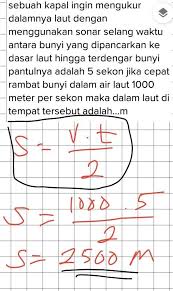 sebuah kapal ingin mengukur
dalamnya laut dengan
menggunakan sonar selang waktu
antara bunyi yang dipancarkan ke
dasar laut hingga terdengar bunyi
pantulnya adalah 5 sekon jika cepat
rambat bunyi dalam air laut 1000
meter per sekon maka dalam laut di
tempat tersebut adalah...m
S = V.t
2
S = 1000.5
2
S = 2500 m